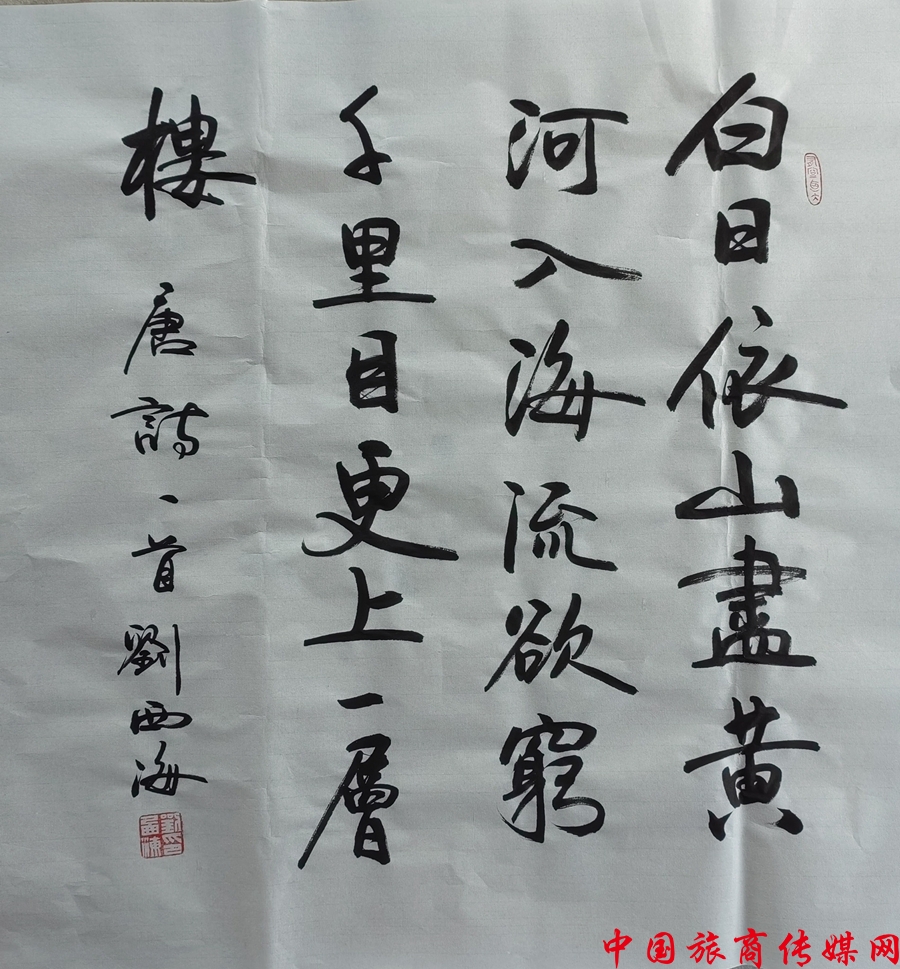 白日依山盡黃
河入海流欲窮
千里目更上一層
樓 唐詩一首劉西海
中国旅商传媒网